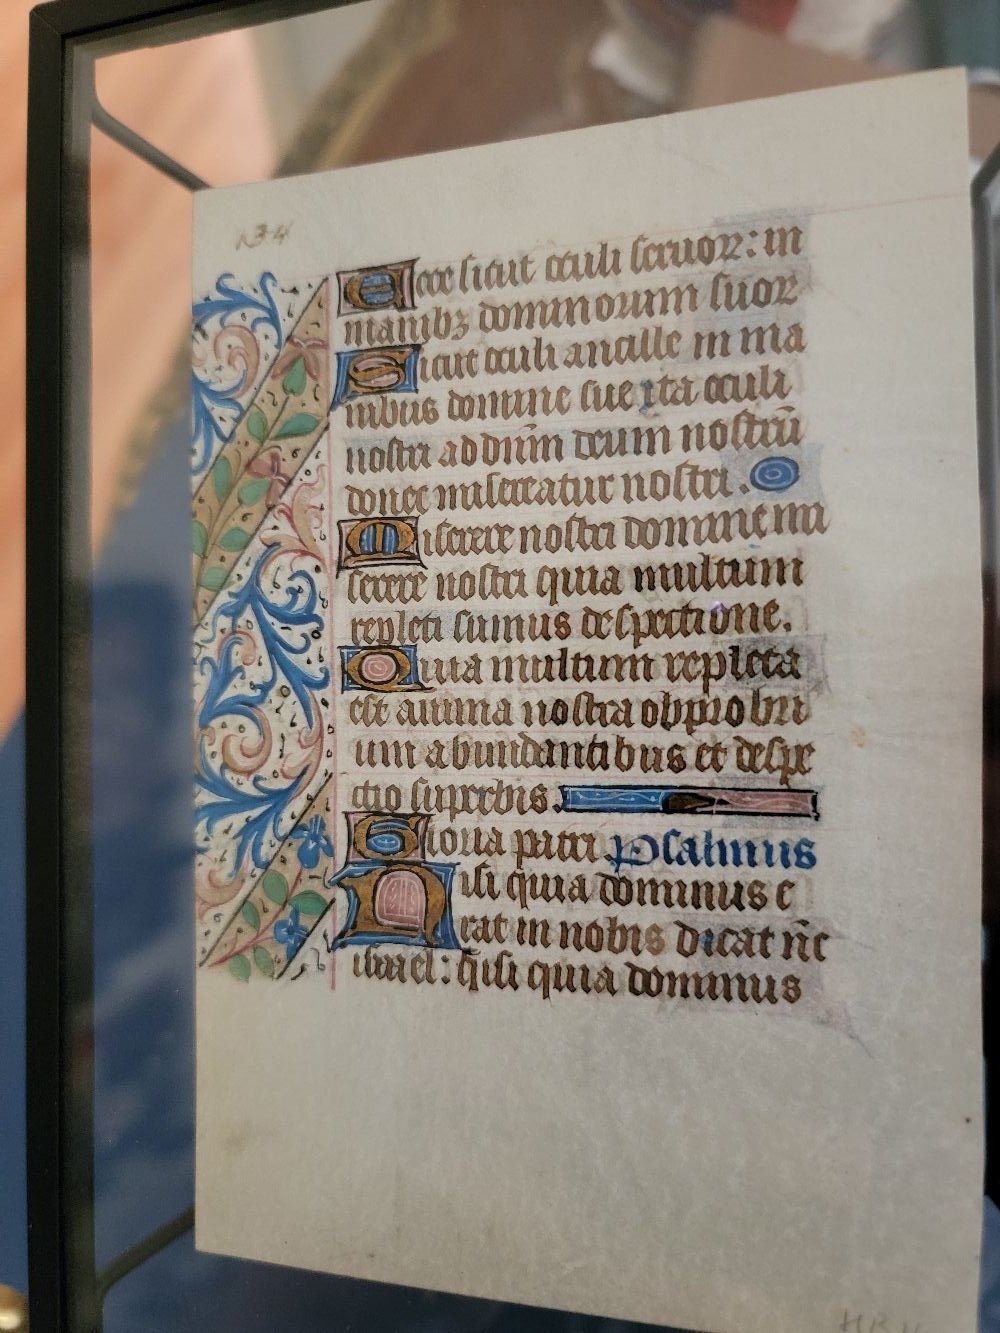 Ecce sicut oculi seruoꝝ: in
manibꝫ dominorum suoꝝ
Sicut oculi ancille in ma
nibus domine sue ita oculi
nostri ad dn̄m deum nostrū
donec misereatur nostri.
Miserere nostri domine mi
serere nostri quia multum
repleti sumus despectione.
Quia multum repleta
est anima nostra obprobri
um abundantibus et despe
ctio superbis.
Gloria patri Psalmus
Nisi quia dominus e
rat in nobis dicat nc̄
israel: nisi quia dominus